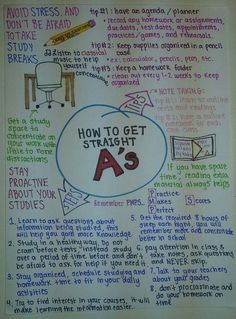 AVOID STRESS, AND
DON'T BE AFRAID
TO TAKE
STUDY
BREAKS
Listen to classical
music to help
yourself
concentrate
tip #1: have an agenda / planner
• record any homework or assignments,
due dates, test dates, appointments,
practices, games, and rehearsals.
tip #2: Keep supplies organized in a pencil
case
• ex: calculator, pencils, pens, etc.
tip #3: Keep a homework folder
• clean out every 1-2 weeks to keep
organized
TIPS
Get a study
space to
concentrate on
your work with
little to few
distractions
HOW TO GET
STRAIGHT
A's
NOTE TAKING:
TIPS
If you have spare
time, reading extra
material always helps
STAY
PROACTIVE
ABOUT YOUR
STUDIES
Remember PMPS..
Practice
Makes
Perfect
Scores
1. Learn to ask questions about
information being studied, this
will help you gain more knowledge.
2. Study in a healthy way. Do not
cram before tests, instead study
over a period of time before and don't
be afraid to ask for help if you need it.
3. Stay organized, schedule studying and
homework time to fit in your daily
activities
4. Try to find interest in your courses, it will
make learning the information easier.
5. Get the required 8 hours of
sleep each night, you will
remember more and concentrate
better in school
6. pay attention in class &
take notes, ask questions
and NEVER skip.
7. Talk to your teachers
about your grades
8. don't procrastinate and
do your homework on
time